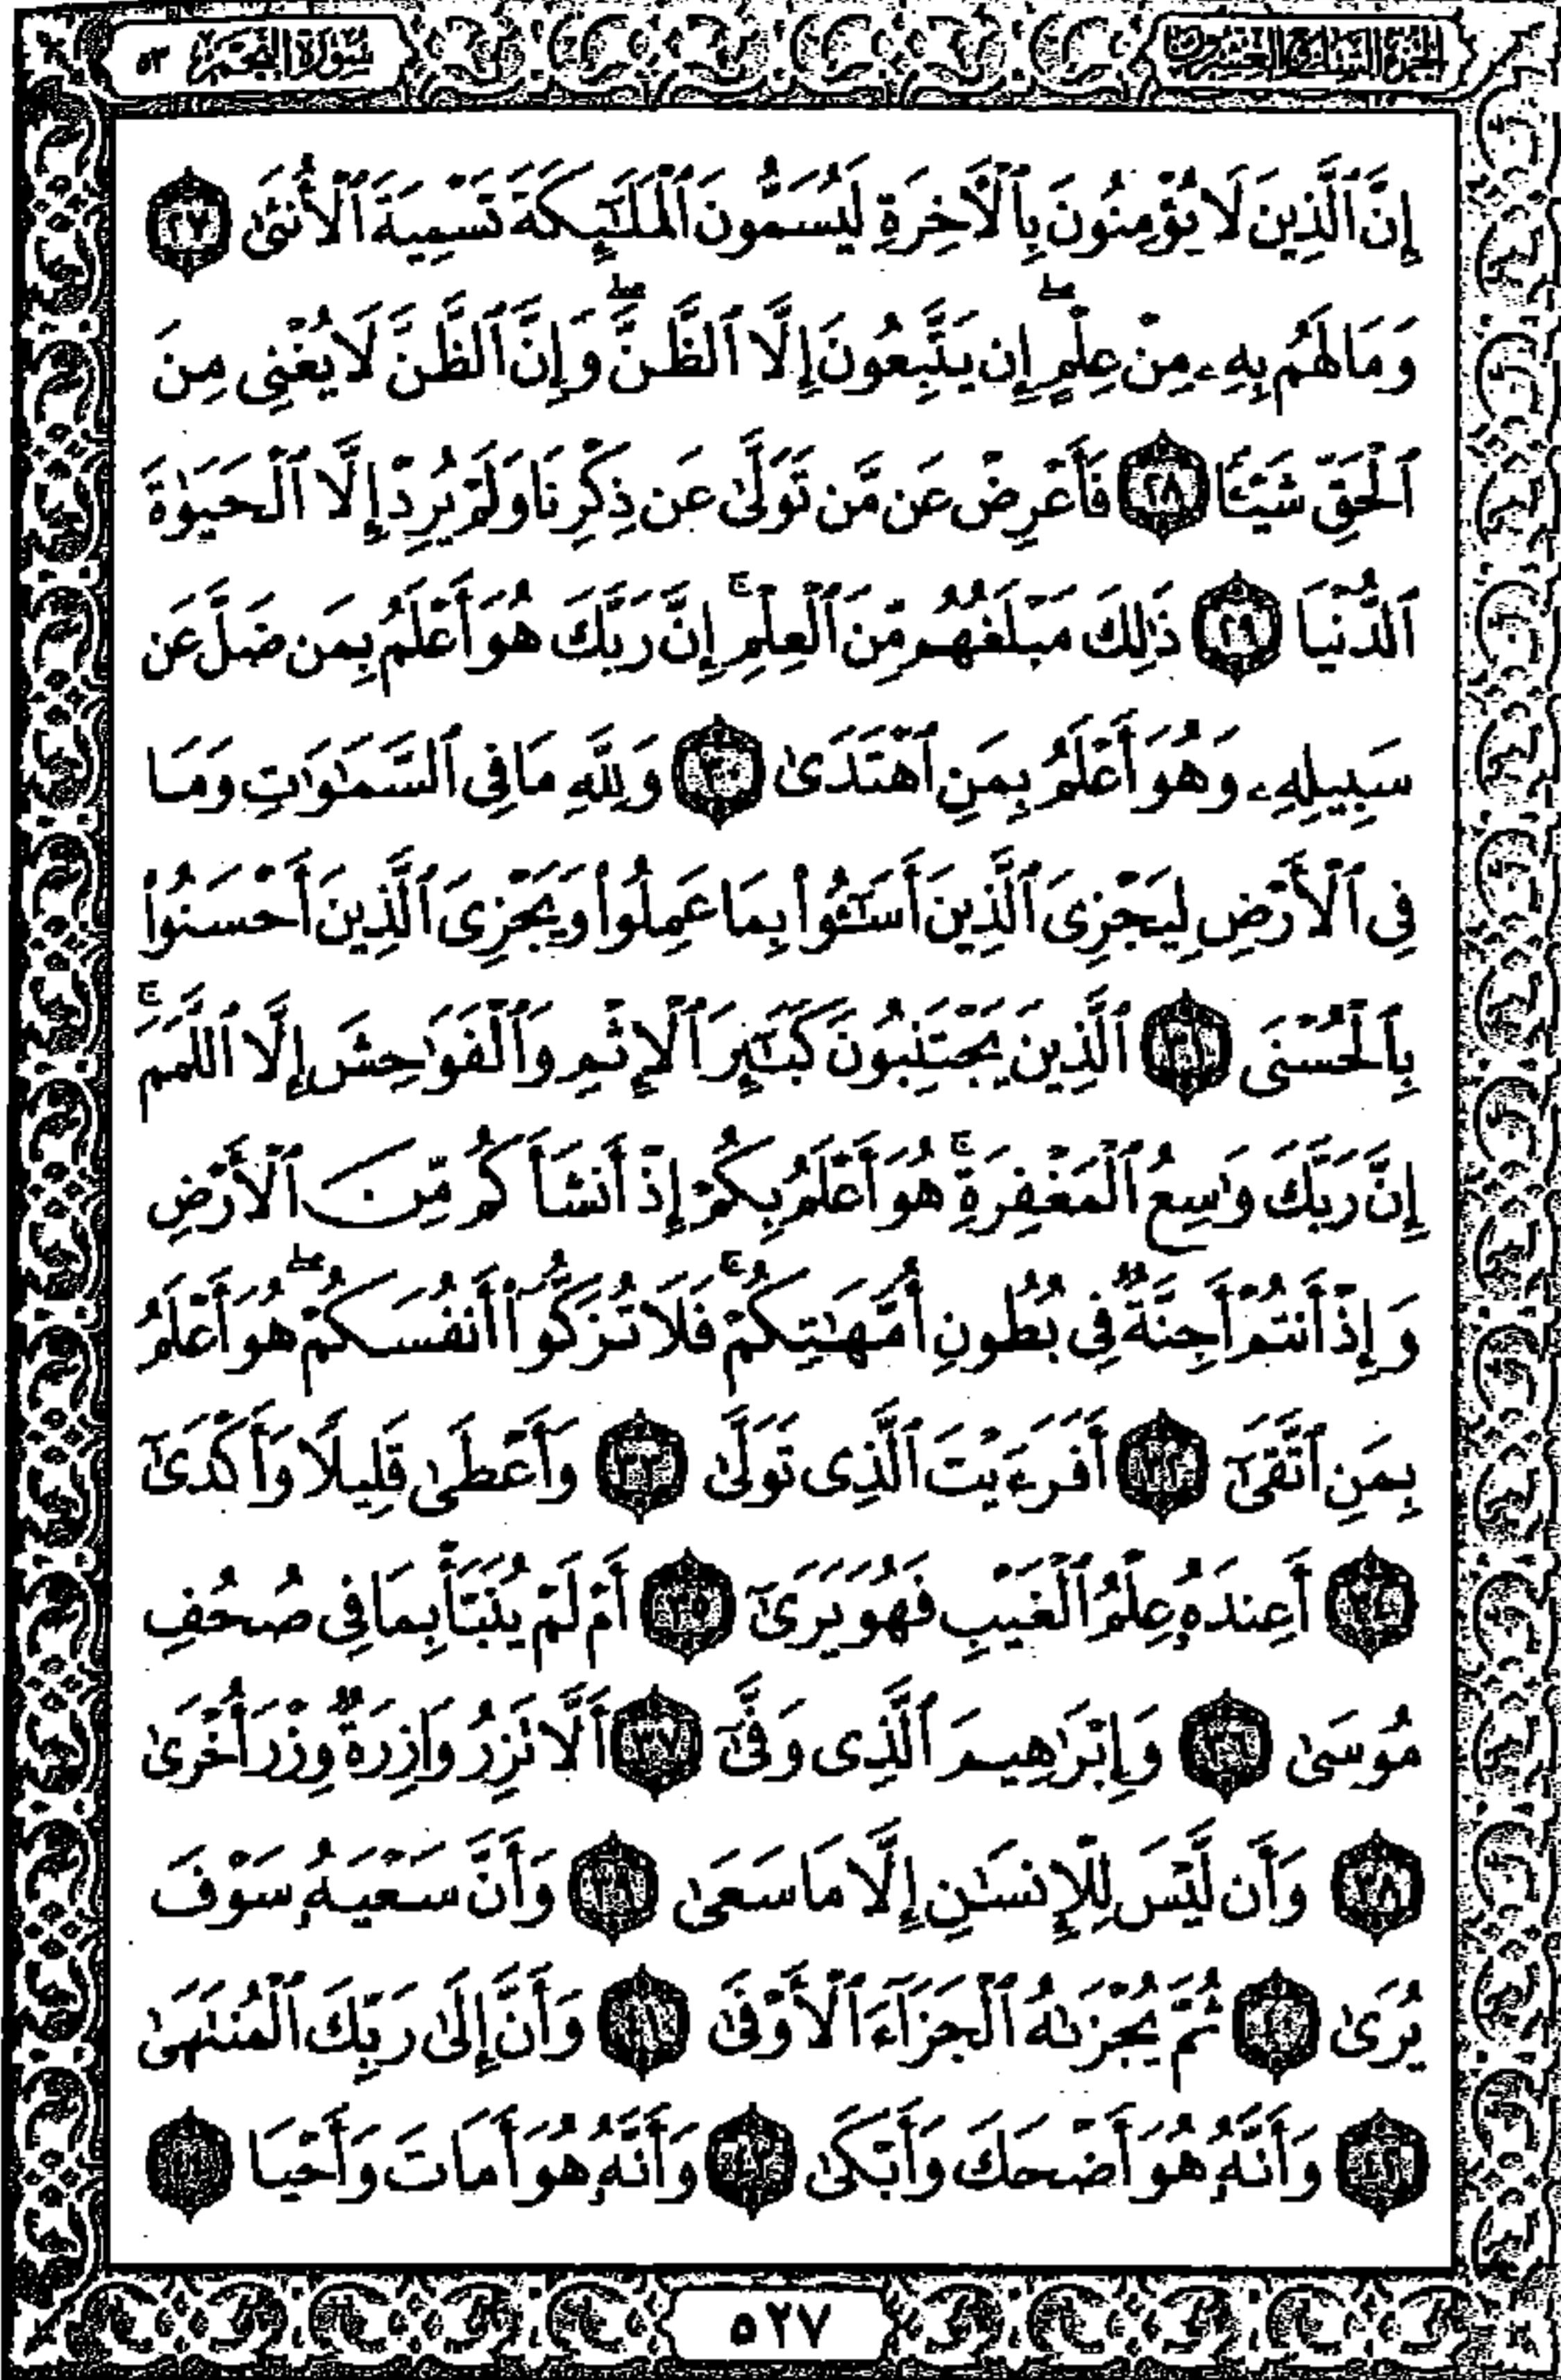 الجزء السابع والعشرون
سورة النجم ٥٣
إِنَّ ٱلَّذِينَ لَا يُؤْمِنُونَ بِٱلْأَخِرَةِ لَيُسَمُّونَ ٱلْمَلَٰٓئِكَةَ تَسْمِيَةَ ٱلْأُنثَىٰ ٢٧
وَمَا لَهُم بِهِۦ مِنْ عِلْمٍ ۖ إِن يَتَّبِعُونَ إِلَّا ٱلظَّنَّ ۖ وَإِنَّ ٱلظَّنَّ لَا يُغْنِى مِنَ
ٱلْحَقِّ شَيْـًٔا ٢٨ فَأَعْرِضْ عَن مَّن تَوَلَّىٰ عَن ذِكْرِنَا وَلَمْ يُرِدْ إِلَّا ٱلْحَيَوٰةَ
ٱلدُّنْيَا ٢٩ ذَٰلِكَ مَبْلَغُهُم مِّنَ ٱلْعِلْمِ ۚ إِنَّ رَبَّكَ هُوَ أَعْلَمُ بِمَن ضَلَّ عَن
سَبِيلِهِۦ وَهُوَ أَعْلَمُ بِمَنِ ٱهْتَدَىٰ ٣٠ وَلِلَّهِ مَا فِى ٱلسَّمَٰوَٰتِ وَمَا
فِى ٱلْأَرْضِ لِيَجْزِىَ ٱلَّذِينَ أَسَٰٓـُٔوا۟ بِمَا عَمِلُوا۟ وَيَجْزِىَ ٱلَّذِينَ أَحْسَنُوا۟
بِٱلْحُسْنَى ٣١ ٱلَّذِينَ يَجْتَنِبُونَ كَبَٰٓئِرَ ٱلْإِثْمِ وَٱلْفَوَٰحِشَ إِلَّا ٱللَّمَمَ ۚ
إِنَّ رَبَّكَ وَٰسِعُ ٱلْمَغْفِرَةِ ۚ هُوَ أَعْلَمُ بِكُمْ إِذْ أَنشَأَكُم مِّنَ ٱلْأَرْضِ
وَإِذْ أَنتُمْ أَجِنَّةٌ فِى بُطُونِ أُمَّهَٰتِكُمْ ۖ فَلَا تُزَكُّوٓا۟ أَنفُسَكُمْ ۖ هُوَ أَعْلَمُ
بِمَنِ ٱتَّقَىٰٓ ٣٢ أَفَرَءَيْتَ ٱلَّذِى تَوَلَّىٰ ٣٣ وَأَعْطَىٰ قَلِيلًا وَأَكْدَىٰٓ
٣٤ أَعِندَهُۥ عِلْمُ ٱلْغَيْبِ فَهُوَ يَرَىٰٓ ٣٥ أَمْ لَمْ يُنَبَّأْ بِمَا فِى صُحُفِ
مُوسَىٰ ٣٦ وَإِبْرَٰهِيمَ ٱلَّذِى وَفَّىٰٓ ٣٧ أَلَّا تَزِرُ وَازِرَةٌ وِزْرَ أُخْرَىٰ
٣٨ وَأَن لَّيْسَ لِلْإِنسَٰنِ إِلَّا مَا سَعَىٰ ٣٩ وَأَنَّ سَعْيَهُۥ سَوْفَ
يُرَىٰ ٤٠ ثُمَّ يُجْزَىٰهُ ٱلْجَزَآءَ ٱلْأَوْفَىٰ ٤١ وَأَنَّ إِلَىٰ رَبِّكَ ٱلْمُنتَهَىٰ
٤٢ وَأَنَّهُۥ هُوَ أَضْحَكَ وَأَبْكَىٰ ٤٣ وَأَنَّهُۥ هُوَ أَمَاتَ وَأَحْيَا ٤٤
٥٢٧